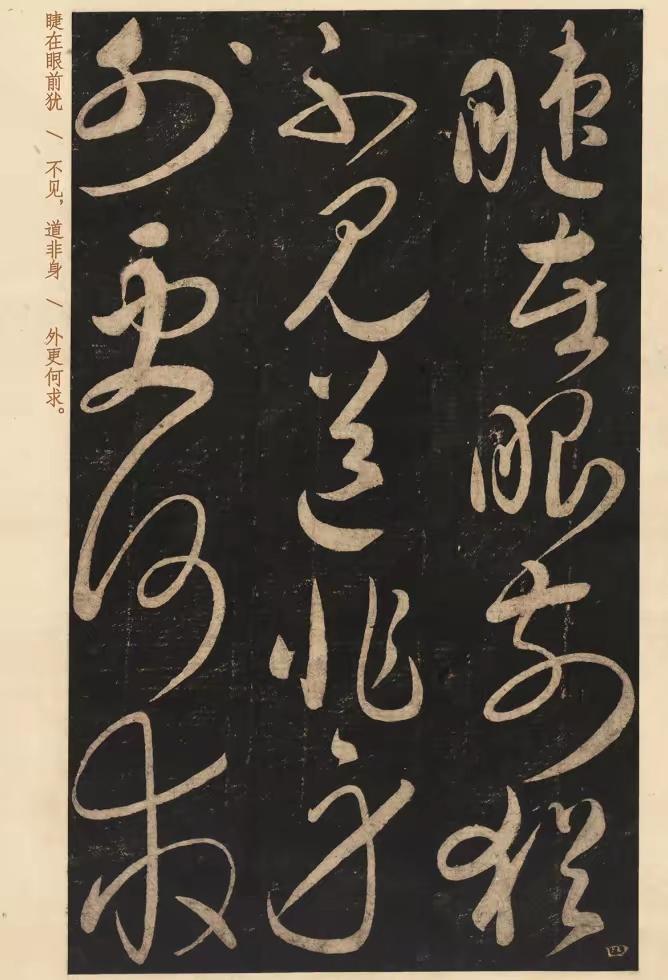 睫在眼前犹
不见道非身
外更何求
睫在眼前犹 / 不见，道非身 / 外更何求。